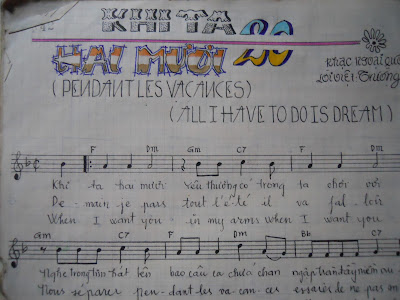 KHI TA
HAI MƯƠI 20
(PENDANT LES VACANCES)
(ALL I HAVE TO DO IS DREAM)
Nhạc Ngoại quốc
Lời việt: Trường
F Dm Gm C7 F Dm
Khi ta hai mươi yêu thương có trong ta chơi vơi
De main je pars tout l'été il va fal loir
When I want you in my arms when I want you
Gm C7 F Dm Bb C7
Nghe trong tim bao câu ca chứa chan ngập tràn
Nous séparer pen dant les va can ces essaies de ne pas